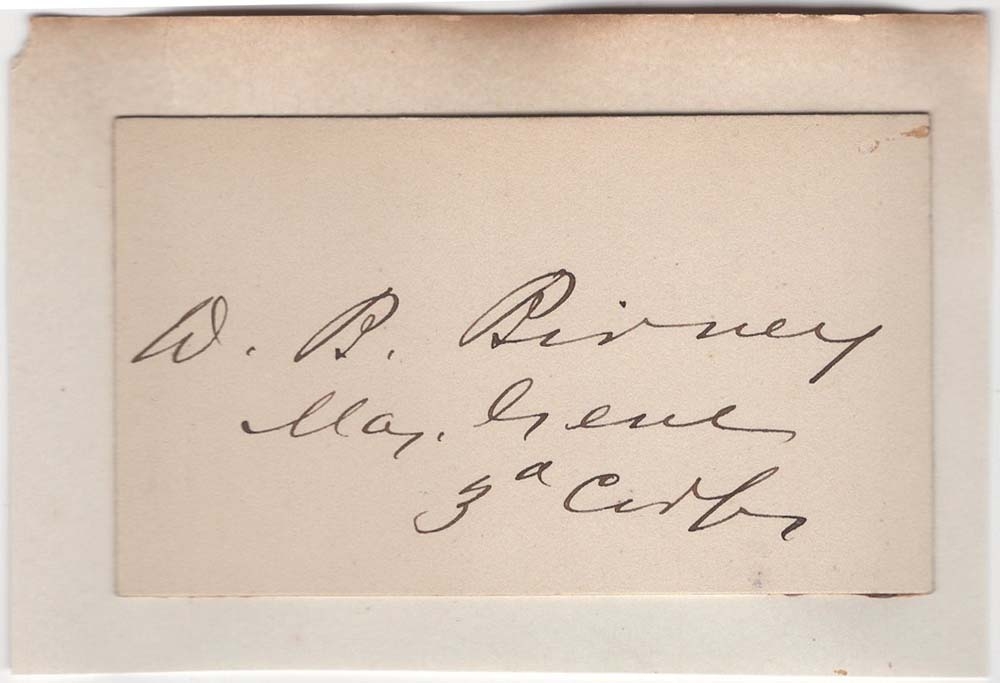 D. B. Birney
Maj. Genl
3d Corps